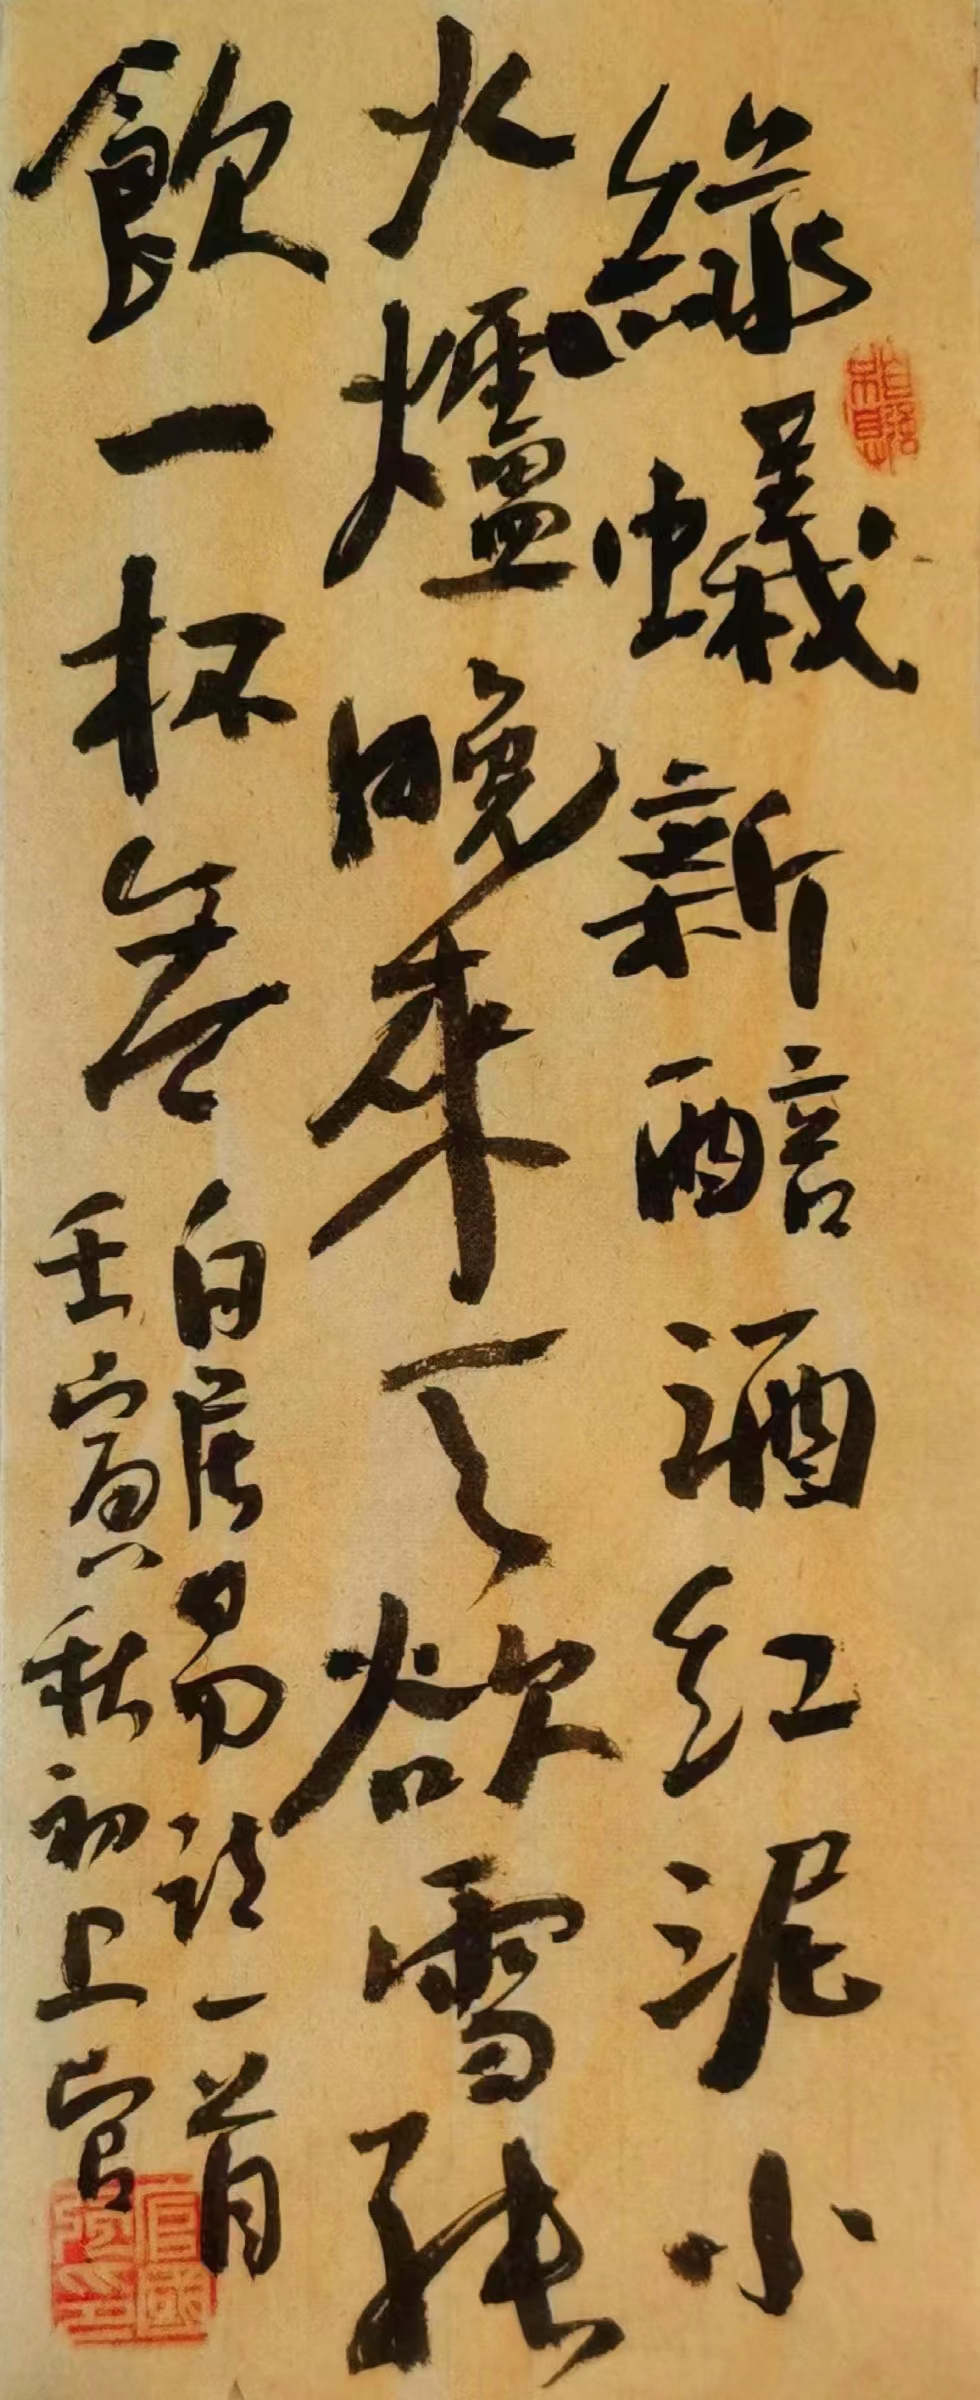 綠蟻新醅酒红泥小
火爐晚来天欲雪能
飲一杯無
白居易诗一首
壬寅秋初上官